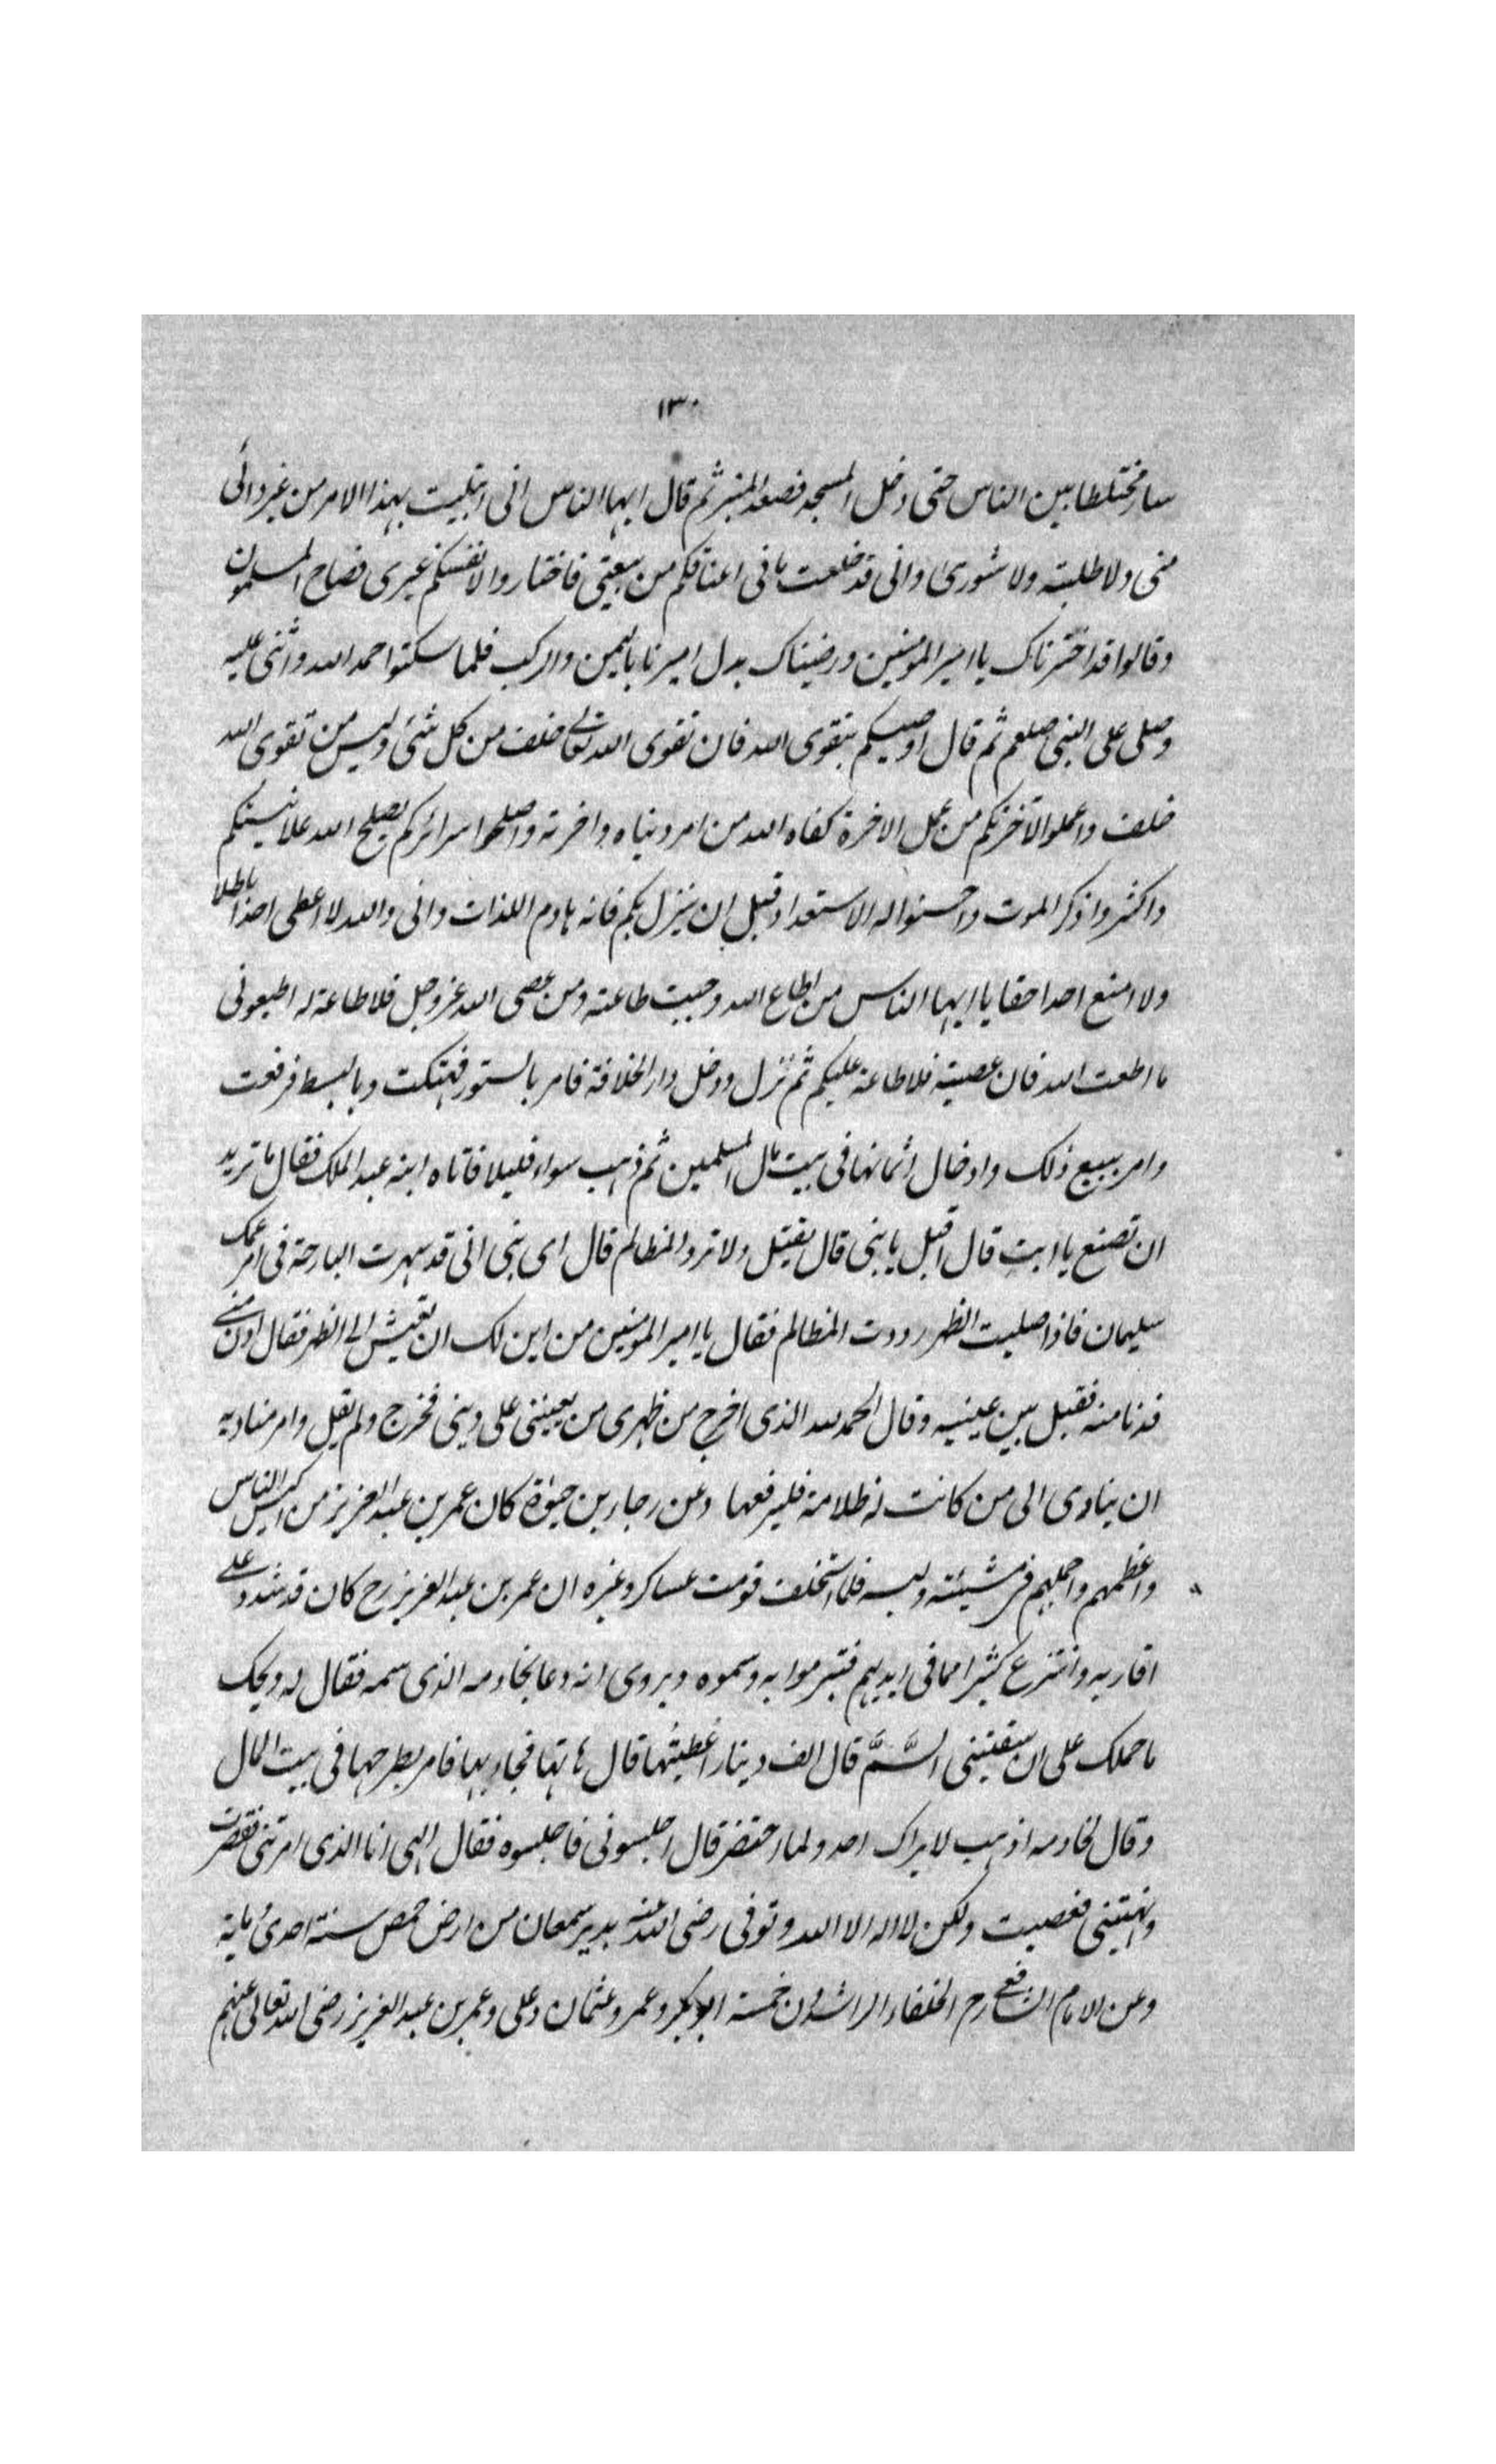 ١٣٠
سار مختلطا بين الناس حتى دخل المسجد فصعد المنبر ثم قال ايها الناس انى ابتليت بهذا الامر من غير رائى
منى ولا طلبته ولا شورى وانى قد خلعت ما فى اعناقكم من بيعتى فاختاروا لانفسكم غيرى فصاح المسلمون
وقالوا قد اخترناك يا امير المؤمنين ورضيناك بدل اميرنا باليمن والركب فلما سكتوا حمد الله واثنى عليه
وصلى على النبى صلعم ثم قال اوصيكم بتقوى الله فان تقوى الله تعالى خلف من كل شئ وليس من تقوى الله
خلف واعملوا لآخرتكم من عمل الاخرة كفاه الله من امر دنياه واخرته واصلحوا سرائركم يصلح الله علانيتكم
واكثروا ذكر الموت واحسنوا له الاستعداد قبل ان ينزل بكم فانه هادم اللذات وانى والله لا اعطى احدا باطلا
ولا امنع احدا حقا يا ايها الناس من اطاع الله وجبت طاعته ومن عصى الله عز وجل فلا طاعة له اطيعونى
ما اطعت الله فان عصيته فلا طاعة عليكم ثم نزل ودخل دار الخلافة فامر بالستور فهتكت وبالبسط فرفعت
وامر ببيع ذلك وادخال اثمانها فى بيت مال المسلمين ثم ذهب سواء قليلا فاتاه ابنه عبد الملك فقال ما تريد
ان تصنع يا ابت قال اقيل يا بنى قال تقيل ولا ترد المظالم قال اى بنى انى قد سهرت البارحة فى امر عمك
سليمان فاذا صليت الظهر رددت المظالم فقال يا امير المؤمنين من اين لك ان تعيش الى الظهر فقال ادن منى
فدنا منه فقبل بين عينيه وقال الحمد لله الذى اخرج من ظهرى من يعيننى على دينى فخرج ولم يقل وامر مناديه
ان ينادى الى من كانت له ظلامة فليرفعها وعن رجاء بن حيوة كان عمر بن عبد العزيز من اكيس الناس
واعظمهم واجملهم فى مشيته ولبسه فلما استخلف قومت عساكر وغيره ان عمر بن عبد العزيز رح كان قد شدد على
اقاربه وانتزع كثيرا مما فى ايديهم فتبرموا به وسموه ويروى انه دعا بخادمه الذى سمه فقال له ويحك
ما حملك على ان سقيتنى السَّمَّ قال الف دينار اُعطيتُها قال هاتها فجاء بها فامر بطرحها فى بيت المال
وقال لخادمه اذهب لا يراك احد ولما احتضر قال اجلسونى فاجلسوه فقال الهى انا الذى امرتنى فقصرت
ونهيتنى فعصيت ولكن لا اله الا الله وتوفى رضى الله عنه بدير سمعان من ارض حمص سنة احدى ومايه
وعن الامام الشافعى رح الخلفاء الراشدون خمسة ابو بكر وعمر وعثمان وعلى وعمر بن عبد العزيز رضى الله تعالى عنهم